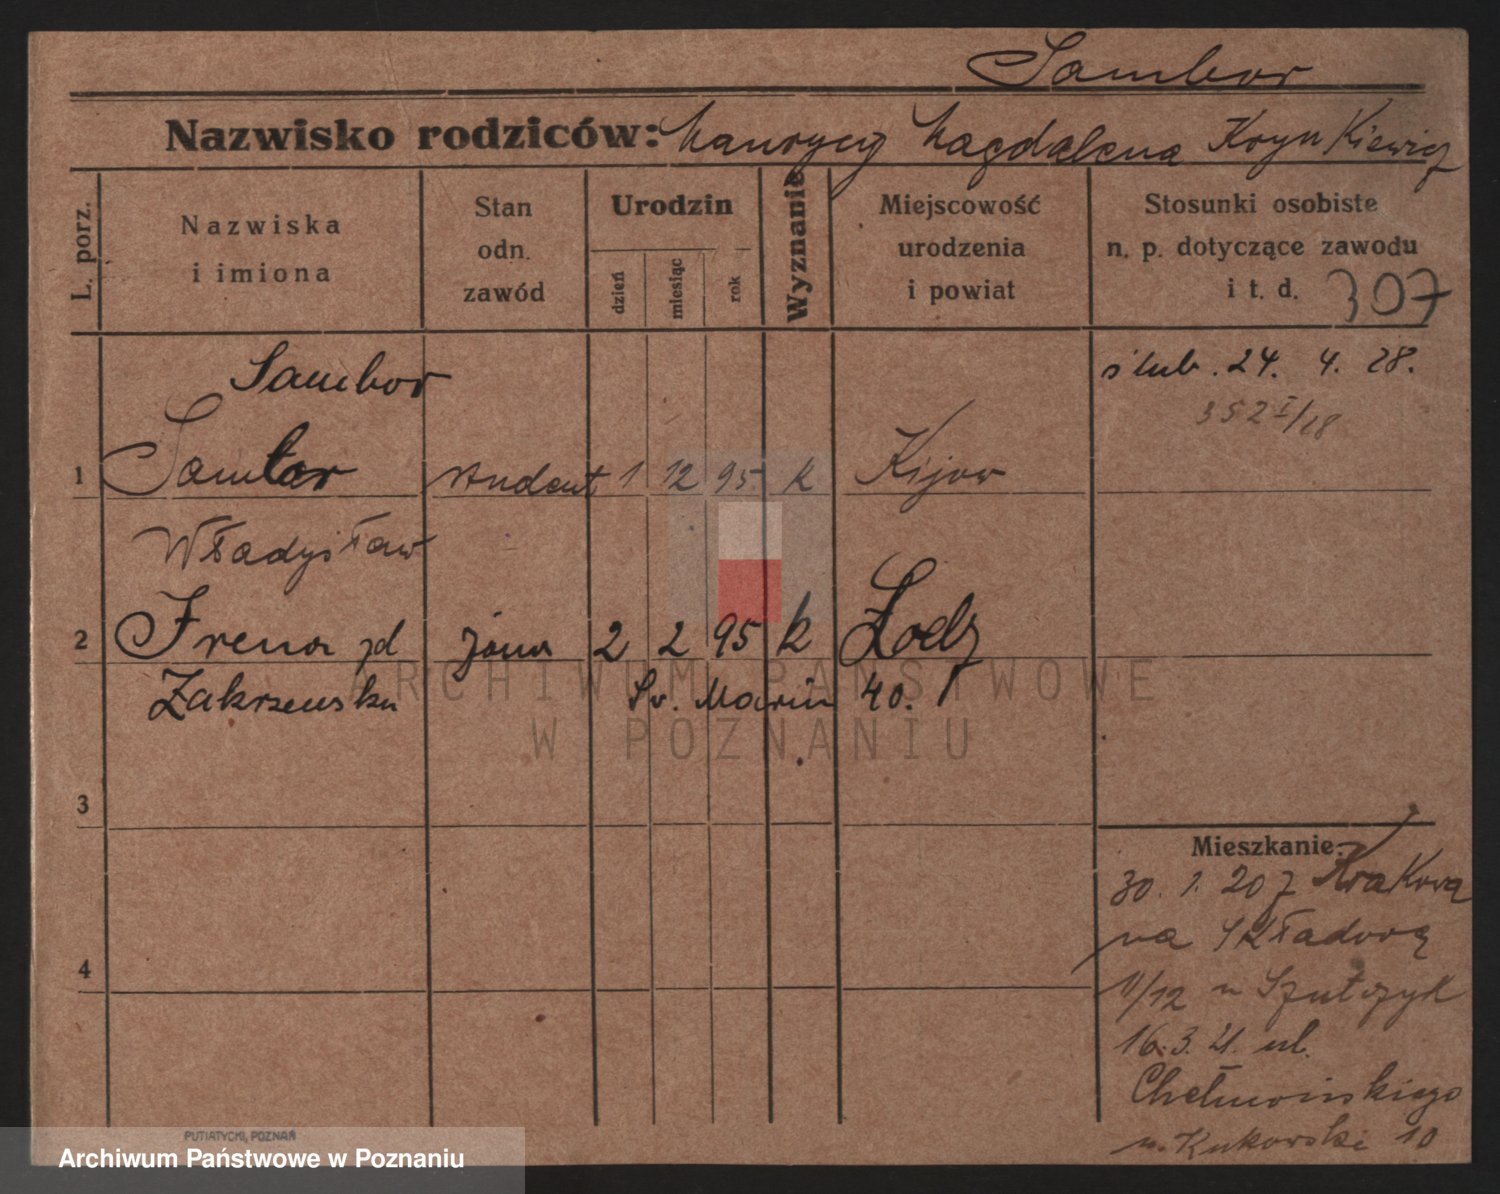 Sambor
Nazwisko rodziców: Maurycy Magdalena Krynkiewicz
L. porz.
Nazwiska
i imiona
Stan
odn.
zawód
Urodzin
dzień
miesiąc
rok
Wyznanie
Miejscowość
urodzenia
i powiat
Stosunki osobiste
n. p. dotyczące zawodu
i t. d. 307
Sambor
ślub. 24. 4. 28.
352 I/28
1 student 1 12 95 k Kijow
Władysław
2 Irena zd żona 2 2 95 k Łodz
Zakrzewska Sv. Marcin 40.
3
Mieszkanie:
30. 1. 20 z Krakowa
na Składową
4
11/12 u Szutczyk
16. 3. 21. ul.
Chełmońskiego
u. Kukowski 10
PUTIATYCKI, POZNAŃ
ARCHIWUM PAŃSTWOWE
W POZNANIU
Archiwum Państwowe w Poznaniu